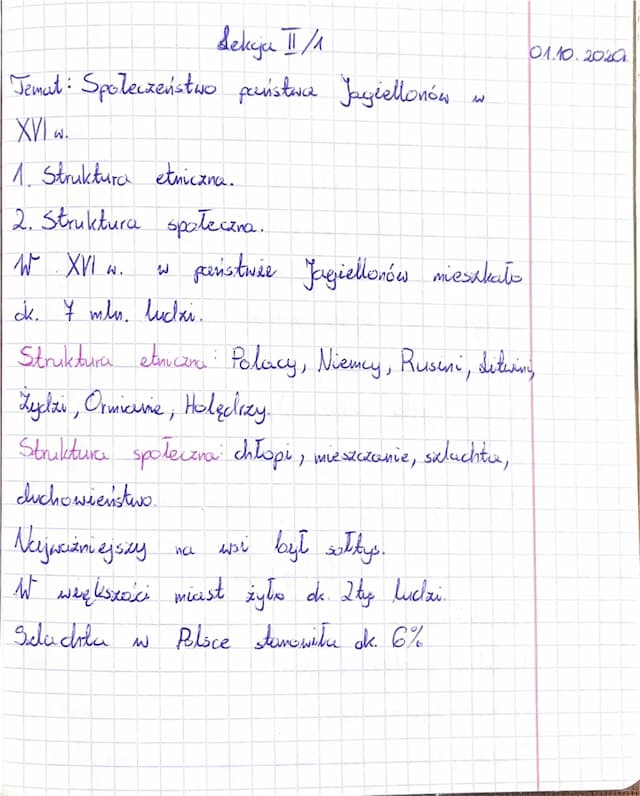 Lekcja II/1
01.10.2020
Temat: Społeczeństwo państwa Jagiellonów w
XVI w.
1. Struktura etniczna.
2. Struktura społeczna.
W XVI w. w państwie Jagiellonów mieszkało
ok. 7 mln. ludzi.
Struktura etniczna: Polacy, Niemcy, Rusini, Litwini,
Żydzi, Ormianie, Holędrzy.
Struktura społeczna: chłopi, mieszczanie, szlachta,
duchowieństwo.
Najważniejszy na wsi był sołtys.
W większości miast żyło ok. 2 tyś ludzi.
Szlachta w Polsce stanowiła ok. 6%